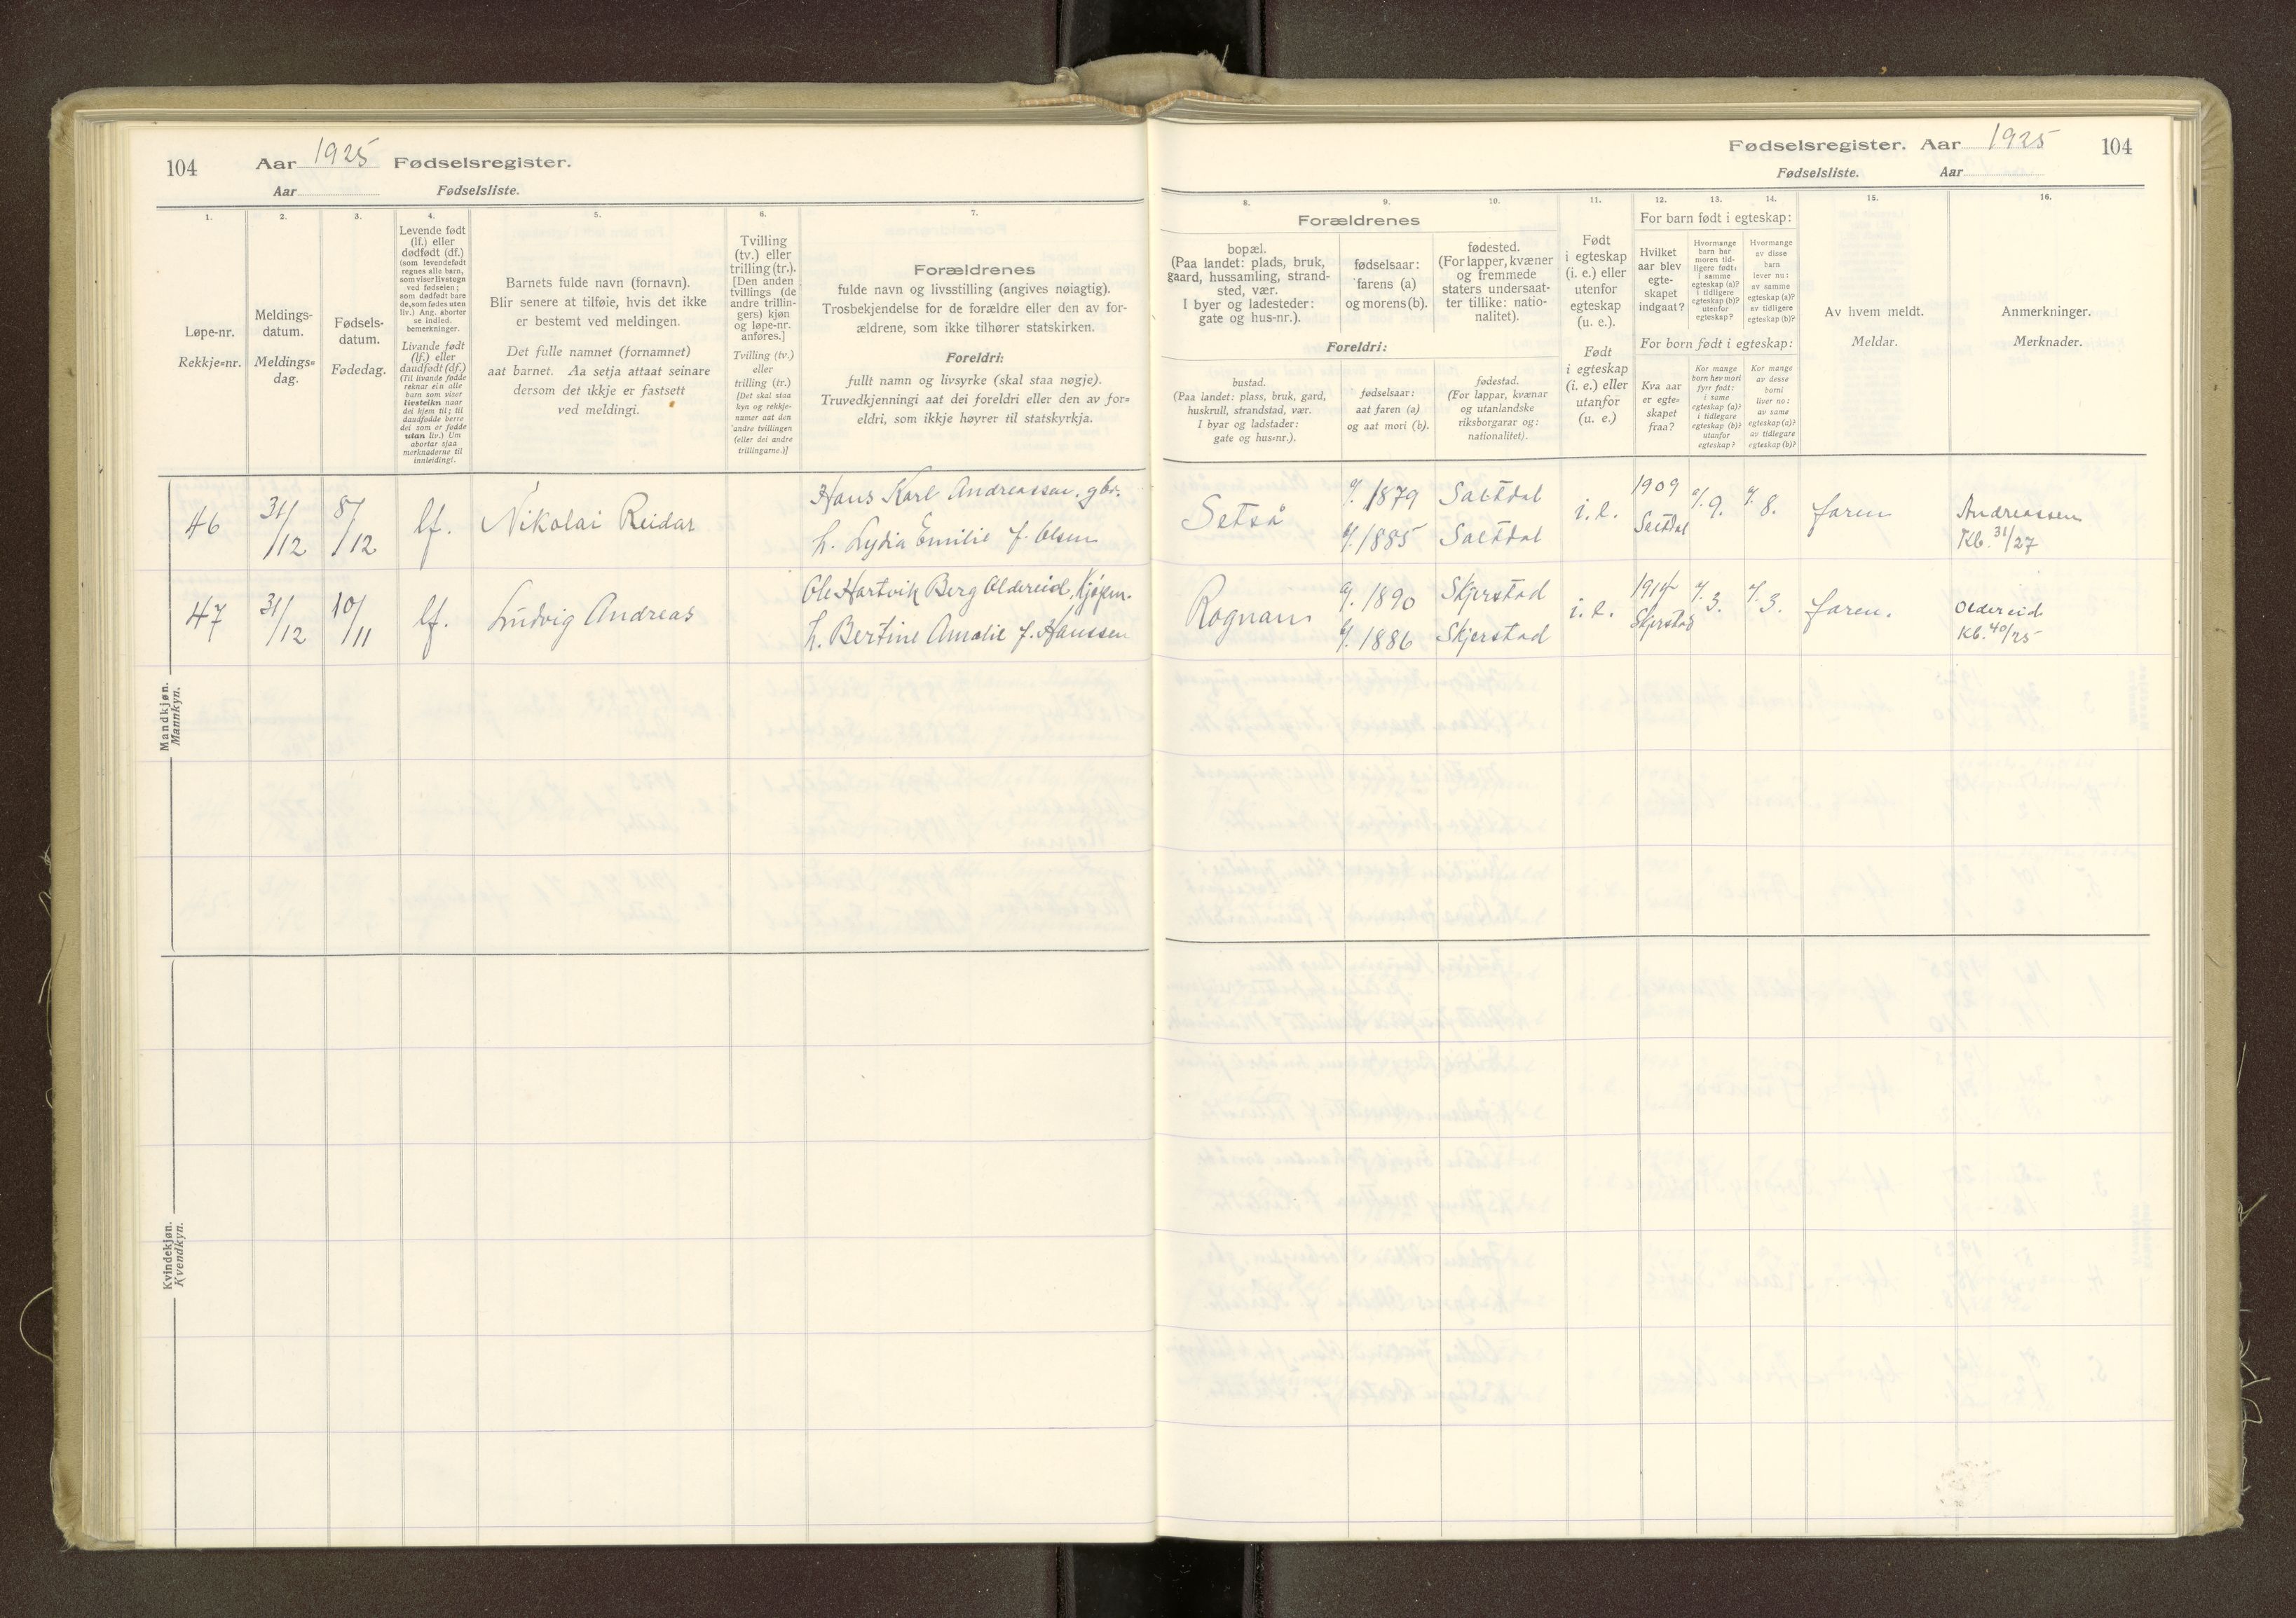 104 Aar 1925 Fødselsregister.
Aar Fødselsliste.
Fødselsregister. Aar 1925 104
Fødselsliste. Aar
1.
Løpe-nr.
Rekkje=nr.
2.
Meldings-
datum.
Meldings=
dag.
3.
Fødsels-
datum.
Fødedag.
4.
Levende født
(lf.) eller
dødfødt (df.)
(som levendefødt
regnes alle barn,
som viser livstegn
ved fødselen;
som dødfødt bare
de, som fødes uten
liv.) Ang. aborter
se indled.
bemerkninger.
Livande født
(lf.) eller
daudfødt (df.)
(Til livande fødde
reknar ein alle
barn som viser
livsteikn naar
dei kjem til; til
daudfødde berre
dei som er fødde
utan liv.) Um
abortar sjaa
merknaderne til
innleidingi.
5.
Barnets fulde navn (fornavn).
Blir senere at tilføie, hvis det ikke
er bestemt ved meldingen.
Det fulle namnet (fornamnet)
aat barnet. Aa setja attaat seinare
dersom det ikkje er fastsett
ved meldingi.
6.
Tvilling
(tv.) eller
trilling (tr.).
[Den anden
tvillings (de
andre trillin-
gers) kjøn
og løpe-nr.
anføres.]
Tvilling (tv.)
eller
trilling (tr.)
[Det skal staa
kyn og rekkje-
numer aat den
andre tvillingen
(eller dei andre
trillingarne.)]
7.
Forældrenes
fulde navn og livsstilling (angives nøiagtig).
Trosbekjendelse for de forældre eller den av for-
ældrene, som ikke tilhører statskirken.
Foreldri:
fullt namn og livsyrke (skal staa nøgje).
Truvedkjenningi aat dei foreldri eller den av for=
eldri, som ikkje høyrer til statskyrkja.
8. 9. 10.
Forældrenes
bopæl.
(Paa landet: plads, bruk,
gaard, hussamling, strand-
sted, vær.
I byer og ladesteder:
gate og hus-nr.).
fødselsaar:
farens (a)
og morens (b).
fødested.
(For lapper, kvæner
og fremmede
staters undersaat-
ter tillike: natio-
nalitet).
Foreldri:
bustad.
(Paa landet: plass, bruk, gard,
huskrull, strandstad, vær.
I byar og ladstader:
gate og hus=nr.).
fødselsaar:
aat faren (a)
og aat mori (b).
fødestad.
(For lappar, kvænar
og utanlandske
riksborgarar og:
nationalitet).
11.
Født
i egteskap
(i. e.) eller
utenfor
egteskap
(u. e.).
Født
i egteskap
(i. e.) eller
utanfor
(u. e.)
12. 13. 14.
For barn født i egteskap:
Hvilket
aar blev
egte-
skapet
indgaat?
Hvormange
barn har
moren tid-
ligere født:
i samme
egteskap (a)?
i tidligere
egteskap (b)?
utenfor
egteskap?
Hvormange
av disse
barn
lever nu:
av samme
egteskap (a)?
av tidligere
egteskap (b)?
For born født i egteskap:
Kva aar
er egte=
skapet
fraa?
Kor mange
born hev mori
fyrr født:
i same
egteskap (a)?
i tidlegare
egteskap (b)?
utanfor
egteskap?
Kor mange
av desse
borni
liver no:
av same
egteskap (a)?
av tidlegare
egteskap (b)?
15.
Av hvem meldt.
Meldar.
16.
Anmerkninger.
Merknader.
Mandkjøn.
Mannkyn.
46 31/12 8/12 lf. Nikolai Reidar
Hans Karl Andreassen, gbr.
h. Lydia Emilie f. Olsen
Setså
a/. 1879 Saltdal
b/. 1885 Saltdal
i.e. 1909 Saltdal a/. 9. a/. 8. faren
Andreassen
Kb. 31/27
47 31/12 10/11 lf. Ludvig Andreas
Ole Hartvik Berg Oldereid, kjøpm.
h. Bertine Amalie f. Hanssen
Rognan
a/. 1890 Skjerstad
b/. 1886 Skjerstad
i.e. 1914 Skjerstad a/. 3. a/. 3. faren.
Oldereid
Kb. 40/25
Kvindekjøn.
Kvendkyn.